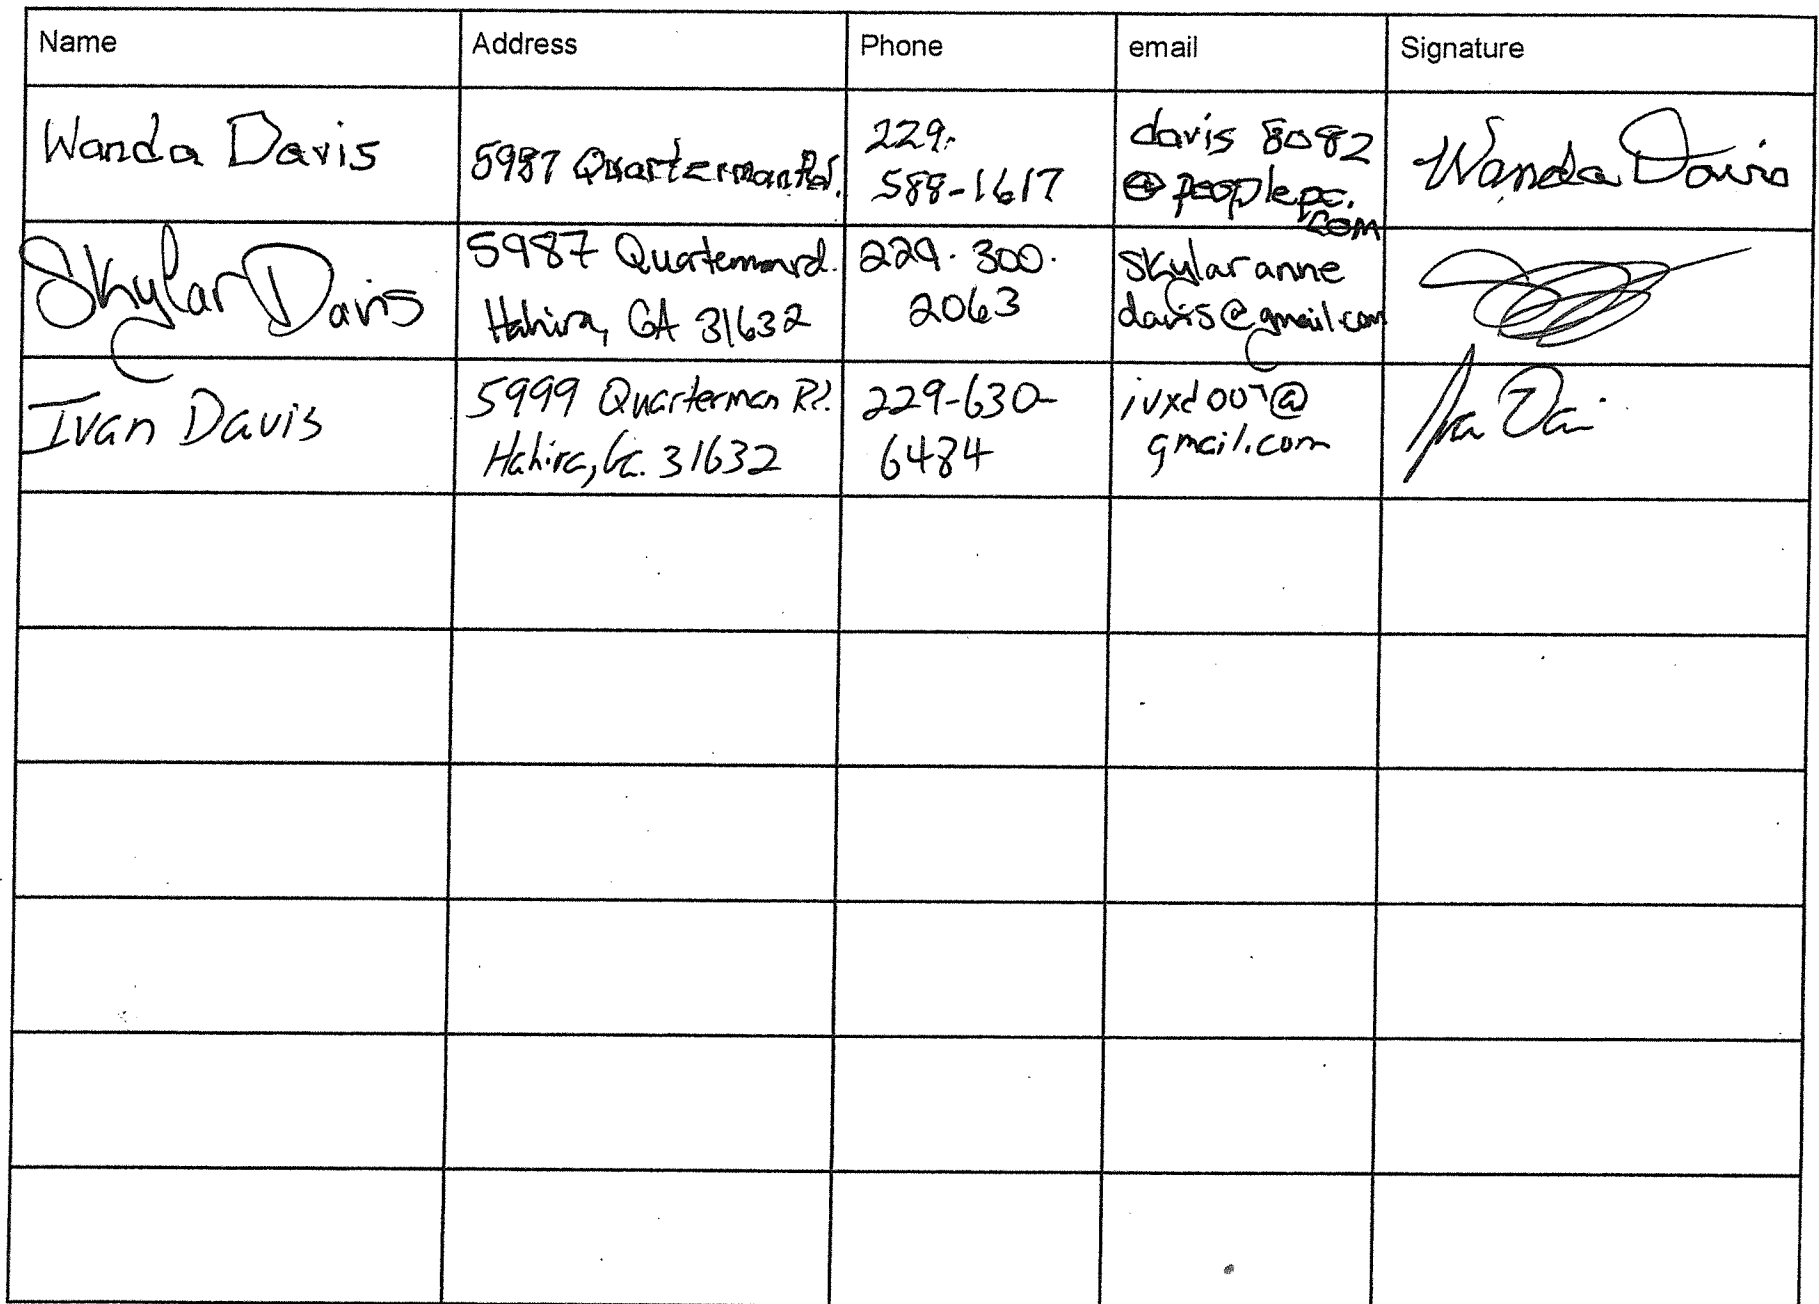 Name Address Phone email Signature
Wanda Davis
5987 Quarterman Rd.
229.
588-1617
davis 8082
@peoplepc.
com
Wanda Davis
Skylar Davis
5987 Quarterman rd.
Hahira, GA 31632
229. 300.
2063
skylaranne
davis@gmail.com
Ivan Davis
5999 Quarterman Rd.
Hahira, Ga. 31632
229-630-
6484
ivxd007@
gmail.com